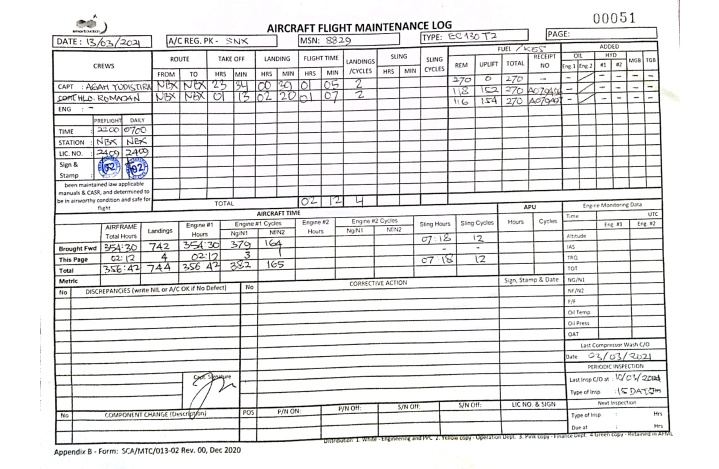 00051
AIRCRAFT FLIGHT MAINTENANCE LOG
DATE: 13/03/2021 A/C REG. PK - SNX MSN: 8829 TYPE: EC130T2 PAGE:
CREWS ROUTE TAKE OFF LANDING FLIGHT TIME LANDINGS /CYCLES SLING SLING CYCLES FUEL / KGS ADDED
FROM TO HRS MIN HRS MIN HRS MIN HRS MIN REM UPLIFT TOTAL RECEIPT NO OIL HYD MGB TGB
Eng 1 Eng 2 #1 #2
270 0 270 -
CAPT : AGAH YUDISTIRA NBX NBX 23 34 00 39 01 05 2 118 152 270
ROMADAN NBX NBX 01 13 02 20 01 07 2 116 154 270
ENG : -
PREFLIGHT DAILY
TIME : 2200 0700
STATION : NBX NBX
LIC. NO. : 2409 2409
Sign & Stamp :
been maintained law applicable manuals & CASR, and determined to be in airworthy condition and safe for flight
TOTAL 02 12 4
AIRCRAFT TIME APU Engine Monitoring Data
AIRFRAME Total Hours Landings Engine #1 Hours Engine #1 Cycles Ng/N1 Nf/N2 Engine #2 Hours Engine #2 Cycles Ng/N1 Nf/N2 Sling Hours Sling Cycles Hours Cycles Time UTC
Eng #1 Eng #2
Brought Fwd 354:30 742 354:30 379 164 07:18 12
This Page 02:12 4 02:12 3 1 - -
Total 356:42 744 356:42 382 165 07:18 12
Metric
Altitude
IAS
TRQ
TOT
NG/N1
NF/N2
F/F
Oil Temp
Oil Press
OAT
No DISCREPANCIES (write NIL or A/C OK if No Defect) No CORRECTIVE ACTION Sign, Stamp & Date
Capt. Signature
Last Compressor Wash C/O
Date 03/03/2021
PERIODIC INSPECTION
Last Insp C/O at : 10/03/2021
Type of Insp :
Next Inspection
Type of Insp : Hrs
Due at : Hrs
No COMPONENT CHANGE (Description) POS P/N ON: P/N Off: S/N Off: S/N Off: LIC NO. & SIGN
Distribution: 1. White - Engineering and PPC 2. Yellow copy - Operation Dept. 3. Pink copy - Finance Dept. 4 Green copy - Retained in AFML
Appendix B - Form: SCA/MTC/013-02 Rev. 00, Dec 2020